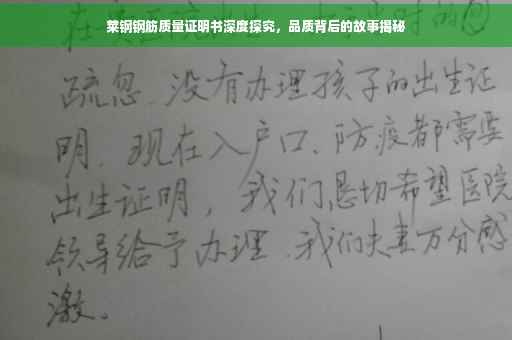 莱钢钢筋质量证明书深度探究，品质背后的故事揭秘
疏忽.没有办理孩子的出生证
明.现在入户口、防疫都需要
出生证明，我们恳切希望医院
领导给予办理.我们夫妻万分感
激。